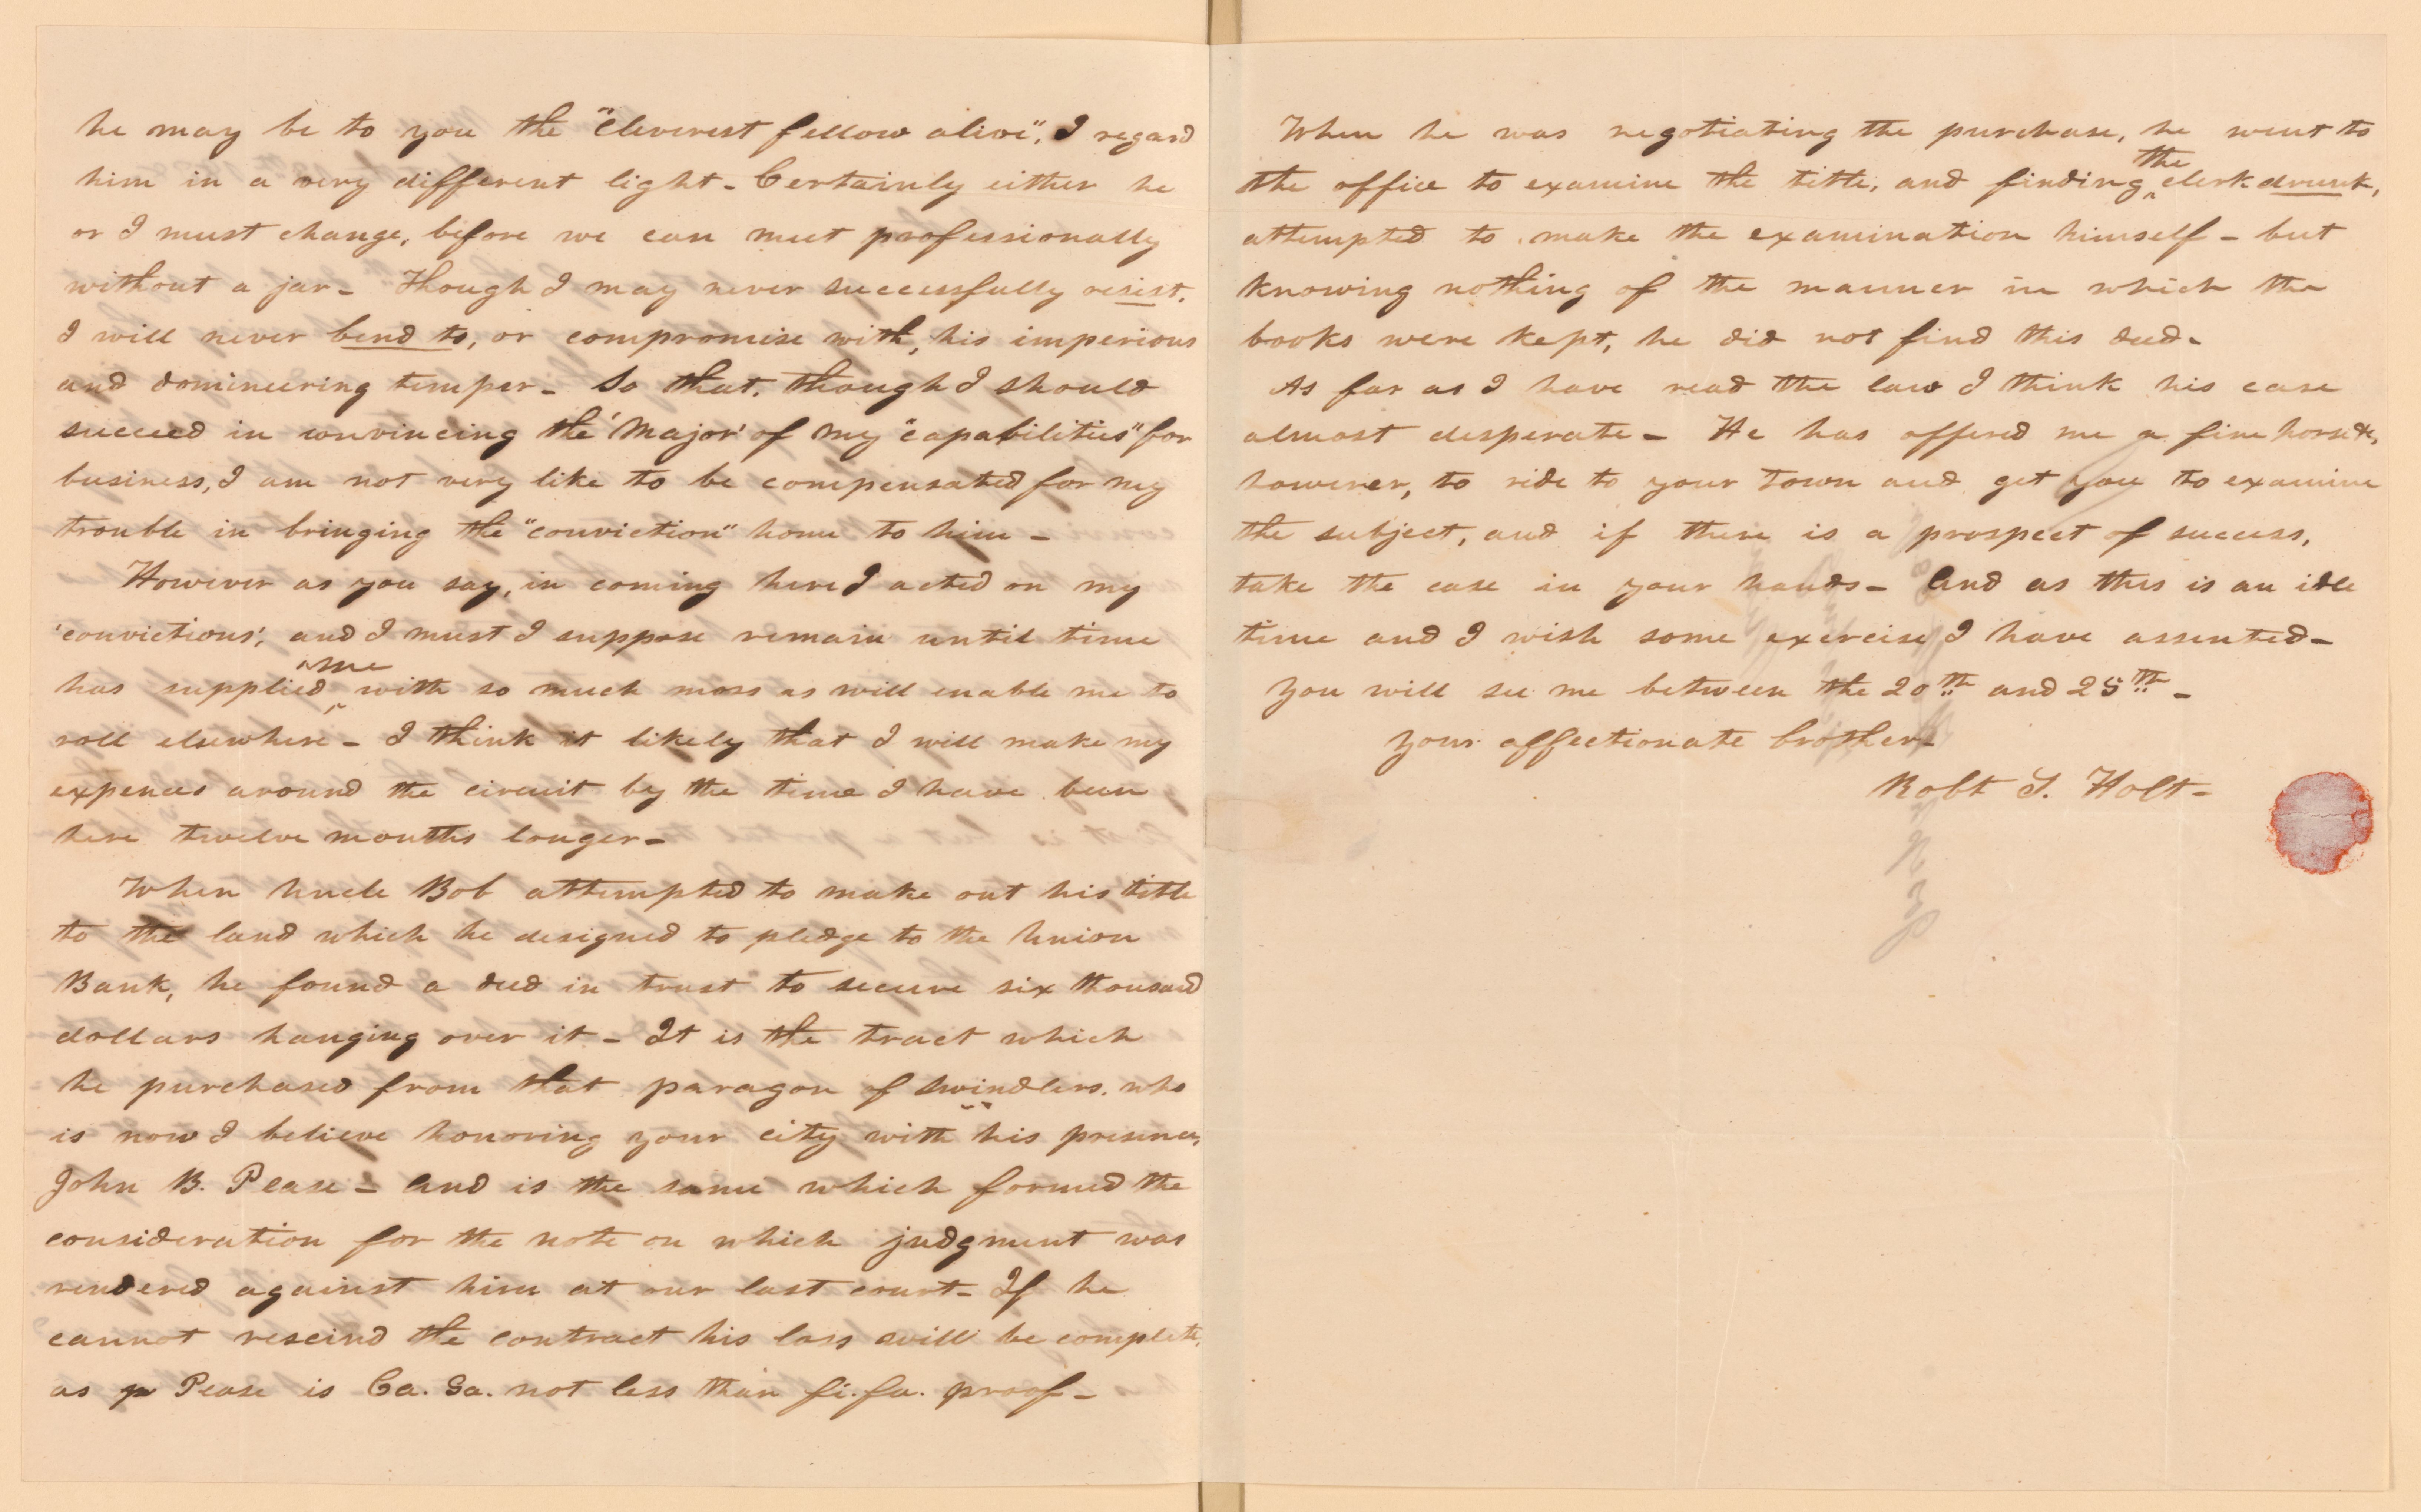 he may be to you the "cleverest fellow alive", I regard
him in a very different light - Certainly either he
or I must change, before we can meet professionally
without a jar - Though I may never successfully resist,
I will never bend to, or compromise with, his imperious
and domineering temper - So that, though I should
succeed in convincing the 'Major' of my "capabilities" for
business, I am not very like to be compensated for my
trouble in bringing the "conviction" home to him -
However as you say, in coming here I acted on my
'convictions', and I must I suppose remain until time
has supplied me with so much moss as will enable me to
roll elsewhere - I think it likely that I will make my
expences around the circuit by the time I have been
here twelve months longer -
When Uncle Bob attempted to make out his title
to the land which he designed to pledge to the Union
Bank, he found a deed in trust to secure six thousand
dollars hanging over it - It is the tract which
he purchased from that paragon of swindlers, who
is now I believe honoring your city with his presence,
John B. Pease - And is the same which formed the
consideration for the note on which judgment was
rendered against him at our last court - If he
cannot rescind the contract his loss will be complete,
as Pease is Ca. Sa. not less than fi. fa. proof -
When he was negotiating the purchase, he went to
the office to examine the title, and finding the clerk drunk,
attempted to make the examination himself - but
knowing nothing of the manner in which the
books were kept, he did not find this deed -
As far as I have read the law I think his case
almost desperate - He has offered me a fine horse &c,
however, to ride to your Town and get you to examine
the subject, and if there is a prospect of success,
take the case in your hands - And as this is an idle
time and I wish some exercise I have assented -
You will see me between the 20th and 25th -
Your affectionate brother -
Robt S. Holt -